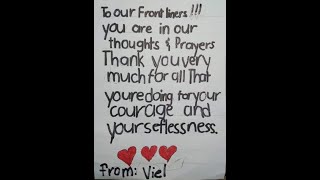 To our Frontliners !!!
you are in our
thoughts & Prayers
Thank you very
much for all That
youre doing for your
courage and
yourseflessness.
From: Viel